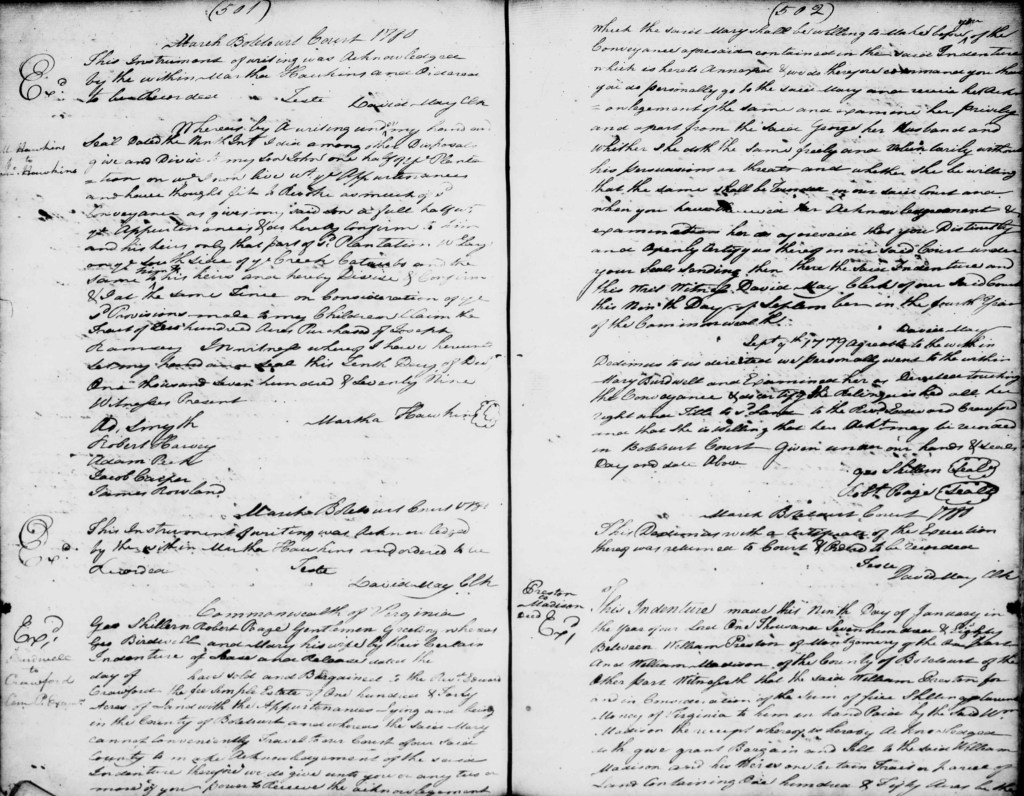 (501)
March Botetourt Court 1780
This Instrument of writing was Acknowledged
by the within Martha Hawkins and Ordered
to be Recorded Teste David May Clk
Exd.
Whereas by A writing under my hand and
Seal Dated the Ninth Inst I did among other Disposals
give and Divise to my Son John one half of ye Planta
ation on wch I now live wt ye Appurtenances
and have thought fit to
Conveyance as gives my said Son a full half wt
ye Appurtenances & do hereby Confirm to him
and his heirs only that part of sd Plantation w
on ye South side of ye Creek Catawba and the
Same to his heirs and hereby Devise & Confirm
& I at the Same Time on Consideration of ye
sd Provisions made to my Children Claim the
Tract of hundred Acres Purchased of Joseph
Ramsey In witness whereof I have hereunto
Set my hand and Seal this Tenth Day of
One thousand Seven hundred & Seventy Nine
Witnesses Present
Martha Hawkins
Hawkins
to
Hawkins
Ad. Smyth
Robert Harvey
Adam Peck
Jacob Carper
James Rowland
March Botetourt Court 1780
This Instrument of writing was Acknowledged
by the within Martha Hawkins and ordered to be
Recorded Teste
David May Clk
Exd.
Commonwealth of Virginia
Geo Skillern Robert Poage Gentlemen Greeting whereas
Geo Birdwell and Mary his wife by their Certain
Indenture of Lease and Release dated the
day of have Sold and Bargained to the Revd
Crawford the fee Simple Estate of One hundred & Forty
Acres of Land with the Appurtenances Lying and being
in the County of Botetourt and whereas the Said Mary
cannot Conveniently Travel to our Court of our Said
County to make Acknowledgement of the said
Indenture therefore we do give unto you or any two or
more of you power to Receive the acknowledgement
Exd.
Birdwell
to
Crawford
(502)
which the said Mary shall be willing to Make before you of the
Conveyance aforesaid contained in the Said Indenture
which is hereto Annexed & we do therefore command you that
you do personally go to the Said Mary and receive her Ackn
owlegement of the same and examine her privily
and apart from the Said George her Husband and
whether She doth the Same freely and Voluntarily without
his persuasions or threats and whether She be willing
that the same shall be in our said Court and
when you have received her Acknowledgement &
examined her as aforesaid that you Distinctly
and Openly Certify us thereof in our Said Court under
your Seals Sending then there the Said Indenture and
this Writ Witness David May Clerk of our Said Court
this Ninth Day of September in the fourth Year
of the Commonwealth
David May
Septr 9th 1779 Agreeable to the within
Dedimus to us directed we personally went to the within
Mary Birdwell and Examined her as Directed touching
the Conveyance & do certify she Relinquished all her
right and Title to sd Land to the Revd Crawford
and that she is willing that her Ackt may be recorded
in Botetourt Court Given under our hands & Seals
Day and date Above
Geo Skillern (Seal)
Robt Poage (Seal)
March Botetourt Court 1780
This Dedimus with a Certificate of the Execution
thereof was returned to Court & Ordered to be recorded
Teste
David May Clk
Preston
to
Madison
Deed
Exd.
This Indenture made this Ninth Day of January in
the Year of our Lord One Thousand Seven hundred & Eighty
Between William Preston of Montgomery of the One part
And William Madison of the County of Botetourt of the
Other part Witnesseth that the said William Preston for
and in Consideration of the Sum of five Shillings Current
Money of Virginia to him in hand Paid by the Said Wm
Madison the receipt whereof is hereby Acknowledged
doth give grant Bargain and Sell to the Said William
Madison and his Heirs one Certain Tract or parcel of
Land Containing One hundred & Fifty Acres be the